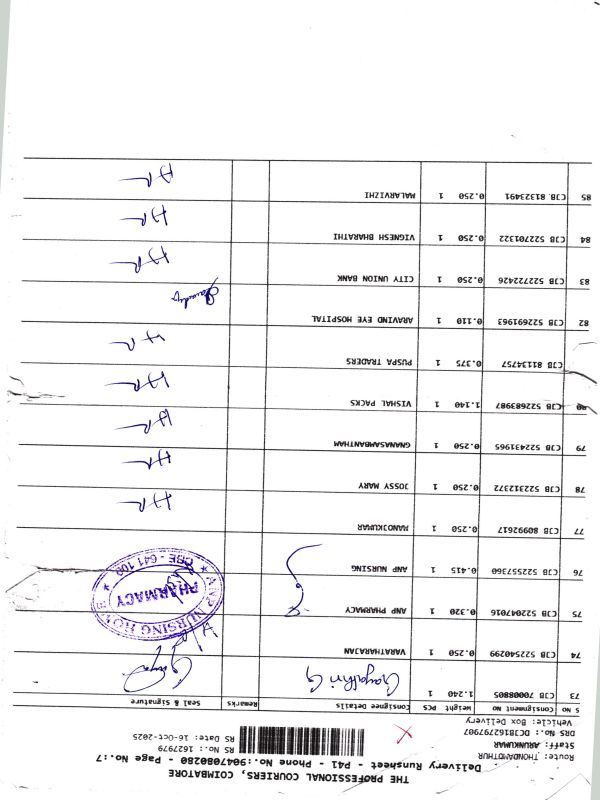 THE PROFESSIONAL COURIERS, COIMBATORE
Delivery Runsheet - P41 - Phone No.:9047080280 - Page No.:7
Route: THONDAMUTHUR
Staff: ARUNKUMAR RS No.: 1627979
DRS No.: RS Date: 16-Oct-2025
Vehicle: Box Delivery
S NO Consignment No Weight PCS Consignee Details Remarks Seal & Signature
73 CJB 70008805 1.240 1 Gayathri G
74 CJB 522540299 0.250 1 VARATHARAJAN
75 CJB 522047016 0.320 1 ANP PHARMACY
76 CJB 522557360 0.415 1 ANP NURSING
A.N.P. NURSING HOME
PHARMACY
★ CBE - 641 109 ★
77 CJB 80992617 0.250 1 MANOJKUMAR
78 CJB 522312372 0.250 1 JOSSY MARY
79 CJB 522431965 0.250 1 GNANASAMBANTHAM
80 CJB 522683987 1.140 1 VISHAL PACKS
CJB 81134757 0.375 1 PUSPA TRADERS
82 CJB 522691963 0.110 1 ARAVIND EYE HOSPITAL
83 CJB 522722426 0.250 1 CITY UNION BANK
84 CJB 522701322 0.250 1 VIGNESH BHARATHI
85 CJB 81323491 0.250 1 MALARVIZHI